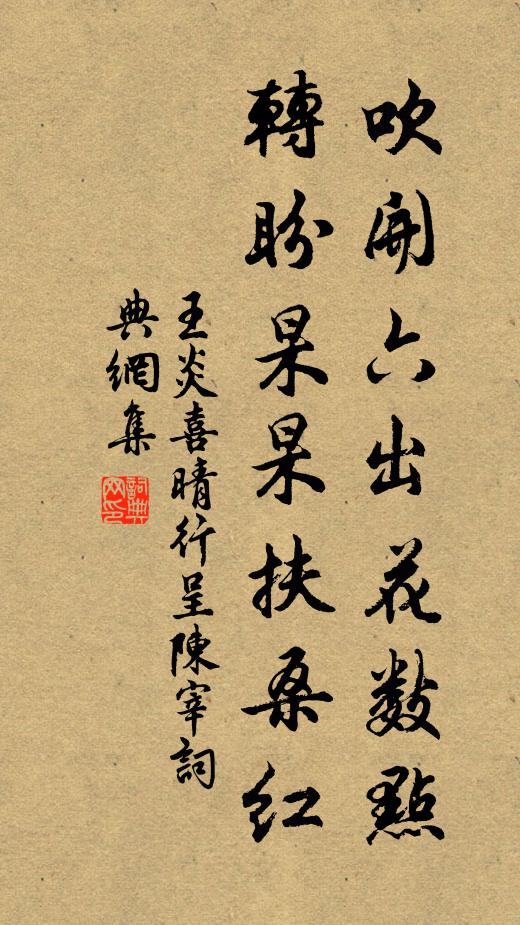 吹開六出花數點
轉盼杲杲扶桑紅
王炎喜晴行呈陳宰詞
典網集
詞典網印